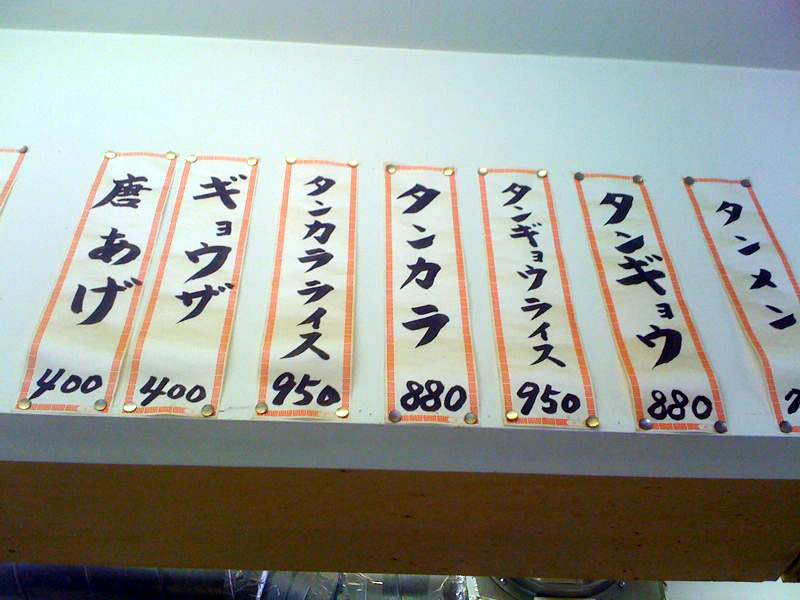 タンメン
タンギョウ
880
タンギョウライス
950
タンカラ
880
タンカラライス
950
ギョウザ
400
唐あげ
400